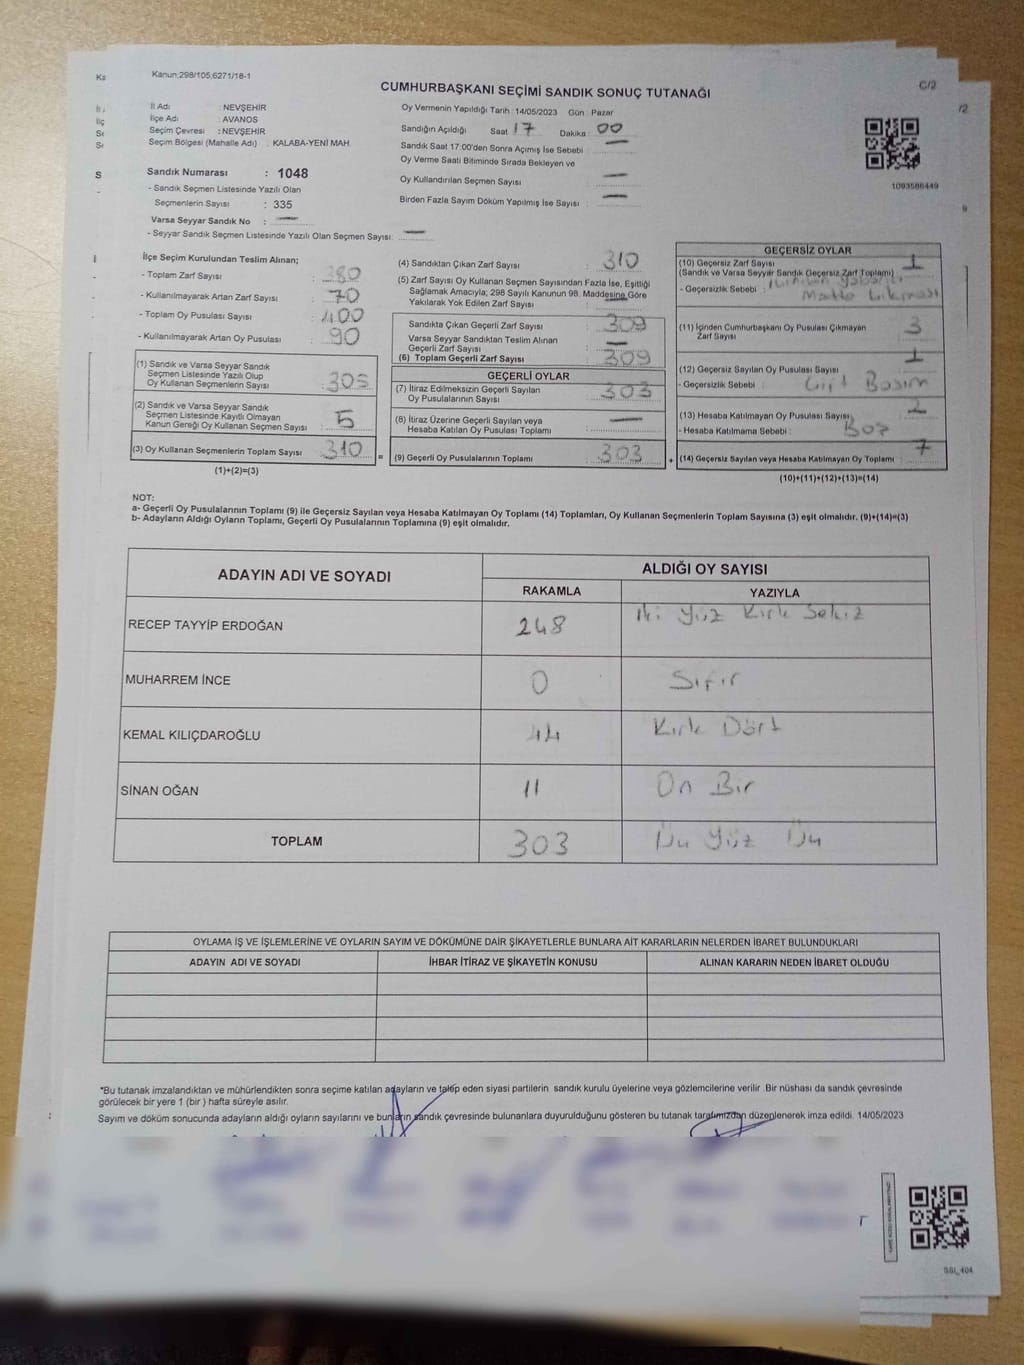 Kanun;298/105,6271/18-1
C/2
CUMHURBAŞKANI SEÇİMİ SANDIK SONUÇ TUTANAĞI
İl Adı : NEVŞEHİR
İlçe Adı : AVANOS
Seçim Çevresi : NEVŞEHİR
Seçim Bölgesi (Mahalle Adı) : KALABA-YENİ MAH.
Sandık Numarası : 1048
- Sandık Seçmen Listesinde Yazılı Olan
Seçmenlerin Sayısı : 335
Varsa Seyyar Sandık No : —
- Seyyar Sandık Seçmen Listesinde Yazılı Olan Seçmen Sayısı: —
Oy Vermenin Yapıldığı Tarih : 14/05/2023 Gün : Pazar
Sandığın Açıldığı Saat 17 Dakika : 00
Sandık Saat 17:00'den Sonra Açımış İse Sebebi : —
Oy Verme Saati Bitiminde Sırada Bekleyen ve
Oy Kullandırılan Seçmen Sayısı : —
Birden Fazla Sayım Döküm Yapılmış İse Sayısı : —
1093586449
İlçe Seçim Kurulundan Teslim Alınan;
- Toplam Zarf Sayısı : 380
- Kullanılmayarak Artan Zarf Sayısı : 70
- Toplam Oy Pusulası Sayısı : 400
- Kullanılmayarak Artan Oy Pusulası : 90
(1) Sandık ve Varsa Seyyar Sandık
Seçmen Listesinde Yazılı Olup
Oy Kullanan Seçmenlerin Sayısı : 305
(2) Sandık ve Varsa Seyyar Sandık
Seçmen Listesinde Kayıtlı Olmayan
Kanun Gereği Oy Kullanan Seçmen Sayısı : 5
(3) Oy Kullanan Seçmenlerin Toplam Sayısı : 310
(1)+(2)=(3)
(4) Sandıktan Çıkan Zarf Sayısı : 310
(5) Zarf Sayısı Oy Kullanan Seçmen Sayısından Fazla İse, Eşitliği
Sağlamak Amacıyla; 298 Sayılı Kanunun 98. Maddesine Göre
Yakılarak Yok Edilen Zarf Sayısı : —
Sandıkta Çıkan Geçerli Zarf Sayısı : 309
Varsa Seyyar Sandıktan Teslim Alınan
Geçerli Zarf Sayısı : —
(6) Toplam Geçerli Zarf Sayısı : 309
GEÇERLİ OYLAR
(7) İtiraz Edilmeksizin Geçerli Sayılan
Oy Pusulalarının Sayısı : 303
(8) İtiraz Üzerine Geçerli Sayılan veya
Hesaba Katılan Oy Pusulası Toplamı : —
= (9) Geçerli Oy Pusulalarının Toplamı : 303
GEÇERSİZ OYLAR
(10) Geçersiz Zarf Sayısı : 1
(Sandık ve Varsa Seyyar Sandık Geçersiz Zarf Toplamı)
- Geçersizlik Sebebi : Madde Çıkması
(11) İçinden Cumhurbaşkanı Oy Pusulası Çıkmayan
Zarf Sayısı : 3
(12) Geçersiz Sayılan Oy Pusulası Sayısı : 1
- Geçersizlik Sebebi : Çift Basım
(13) Hesaba Katılmayan Oy Pusulası Sayısı : 2
- Hesaba Katılmama Sebebi : Boş
+ (14) Geçersiz Sayılan veya Hesaba Katılmayan Oy Toplamı : 7
(10)+(11)+(12)+(13)=(14)
NOT:
a- Geçerli Oy Pusulasının Toplamı (9) ile Geçersiz Sayılan veya Hesaba Katılmayan Oy Toplamı (14) Toplamları, Oy Kullanan Seçmenlerin Toplam Sayısına (3) eşit olmalıdır. (9)+(14)=(3)
b- Adayların Aldığı Oyların Toplamı, Geçerli Oy Pusulalarının Toplamına (9) eşit olmalıdır.
ADAYIN ADI VE SOYADI ALDIĞI OY SAYISI
RAKAMLA YAZIYLA
RECEP TAYYİP ERDOĞAN 248 iki yüz Kırk Sekiz
MUHARREM İNCE 0 Sıfır
KEMAL KILIÇDAROĞLU 44 Kırk Dört
SİNAN OĞAN 11 On Bir
TOPLAM 303 Üç Yüz Üç
OYLAMA İŞ VE İŞLEMLERİNE VE OYLARIN SAYIM VE DÖKÜMÜNE DAİR ŞİKAYETLERLE BUNLARA AİT KARARLARIN NELERDEN İBARET BULUNDUKLARI
ADAYIN ADI VE SOYADI İHBAR İTİRAZ VE ŞİKAYETİN KONUSU ALINAN KARARIN NEDEN İBARET OLDUĞU
*Bu tutanak imzalandıktan ve mühürlendikten sonra seçime katılan adayların ve talep eden siyasi partilerin sandık kurulu üyelerine veya gözlemcilerine verilir. Bir nüshası da sandık çevresinde
görülecek bir yere 1 (bir) hafta süreyle asılır.
Sayım ve döküm sonucunda adayların aldığı oyların sayılarını ve bunların sandık çevresinde bulunanlara duyurulduğunu gösteren bu tutanak tarafımızdan düzenlenerek imza edildi. 14/05/2023
SSI_404